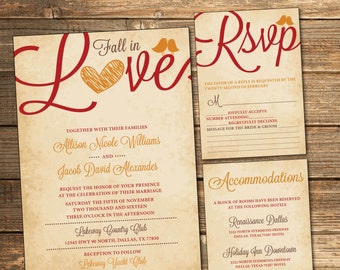 Fall in
Love
TOGETHER WITH THEIR FAMILIES
Allison Nicole Williams
AND
Jacob David Alexander
REQUEST THE HONOR OF YOUR PRESENCE
AT THE CELEBRATION OF THEIR MARRIAGE
SATURDAY THE FIFTH OF NOVEMBER
TWO THOUSAND AND SIXTEEN
THREE O'CLOCK IN THE AFTERNOON
Lakeway Country Club
12345 HWY 90 NORTH, DALLAS, TX 77830
RECEPTION TO FOLLOW
Lakeway Yacht Club
Rsvp
THE FAVOR OF A REPLY IS REQUESTED BY THE
TWENTY-SECOND OF FEBRUARY
M
JOYFULLY ACCEPTS
NUMBER ATTENDING
REGRETFULLY DECLINES
MESSAGE FOR THE BRIDE & GROOM
Accommodations
A BLOCK OF ROOMS ARE RESERVED
AT BOTH OF THE FOLLOWING HOTELS
Renaissance Dallas
Holiday Inn Downtown